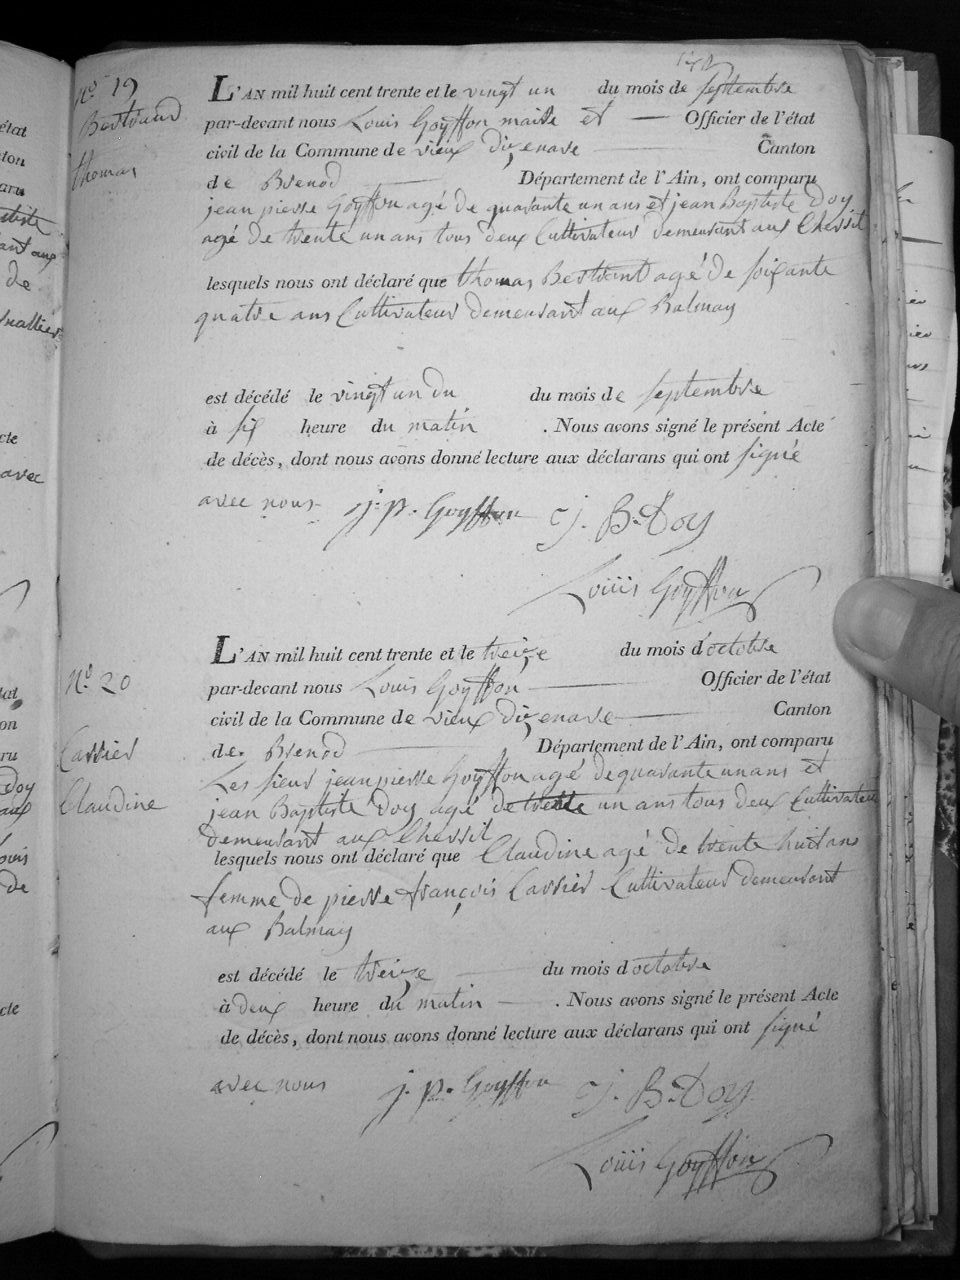 N.o 19
Bertrand
thomas
L'AN mil huit cent trente et le vingt un du mois de septembre
par-devant nous Louis Goyffon maire et Officier de l'état
civil de la Commune de vieux dizenave Canton
de Brenod Département de l'Ain, ont comparu
jean pierre Goyffon agé de quarante un ans et jean Baptiste Doy
agé de trente un ans tous deux Cultivateurs demeurant aux Chessit
lesquels nous ont déclaré que thomas Bertrant agé de soixante
quatre ans Cultivateur demeurant aux Balmay
est décédé le vingt un du du mois de septembre
à six heure du matin . Nous avons signé le présent Acte
de décès, dont nous avons donné lecture aux déclarans qui ont signé
avec nous j. p. Goyffon j. B. Doy
Louiis Goyffon
N.o 20
Carrier
Claudine
L'AN mil huit cent trente et le treize du mois d'octobre
par-devant nous Louis Goyffon Officier de l'état
civil de la Commune de vieux dizenave Canton
de Brenod Département de l'Ain, ont comparu
Les sieur jean pierre Goyffon agé de quarante un ans et
jean Baptiste Doy agé de trente un ans tous deux Cultivateur
demeurant aux Chessit
lesquels nous ont déclaré que Claudine agé de trente huit ans
femme de pierre françois Carrier Cultivateur demeurant
aux Balmay
est décédé le treize du mois d'octobre
à deux heure du matin . Nous avons signé le présent Acte
de décès, dont nous avons donné lecture aux déclarans qui ont signé
avec nous j. p. Goyffon j. B. Doy
Louiis Goyffon